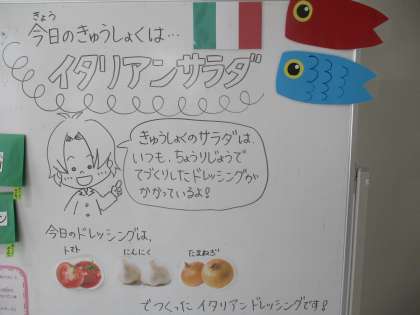 きょう
今日のきゅうしょくは…
イタリアンサラダ
きゅうしょくのサラダは
いつも、ちょうりじょうで
てづくりしたドレッシングが
かかっているよ!
今日のドレッシングは、
トマト にんにく たまねぎ
でつくった イタリアンドレッシングです!